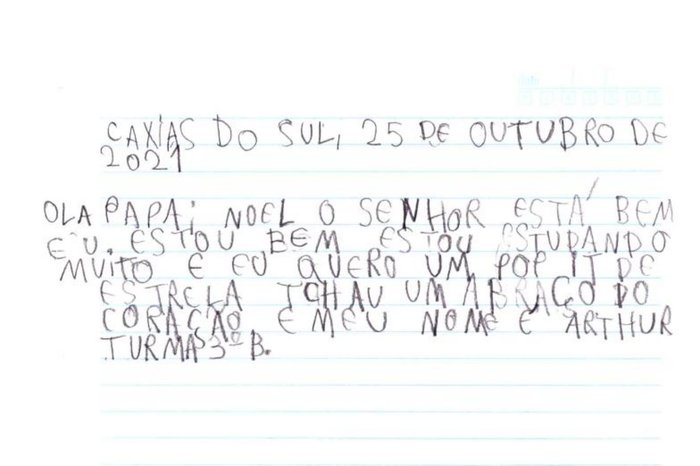 CAXIAS DO SUL, 25 DE OUTUBRO DE
2021
OLA PAPAI NOEL O SENHOR ESTÁ BEM
EU. ESTOU BEM ESTOU ESTUDANDO
MUITO E EU QUERO UM POP IT DE
ESTRELA TCHAU UM ABRAÇO DO
CORAÇÃO E MEU NOME E ARTHUR
TURMA 3º B.